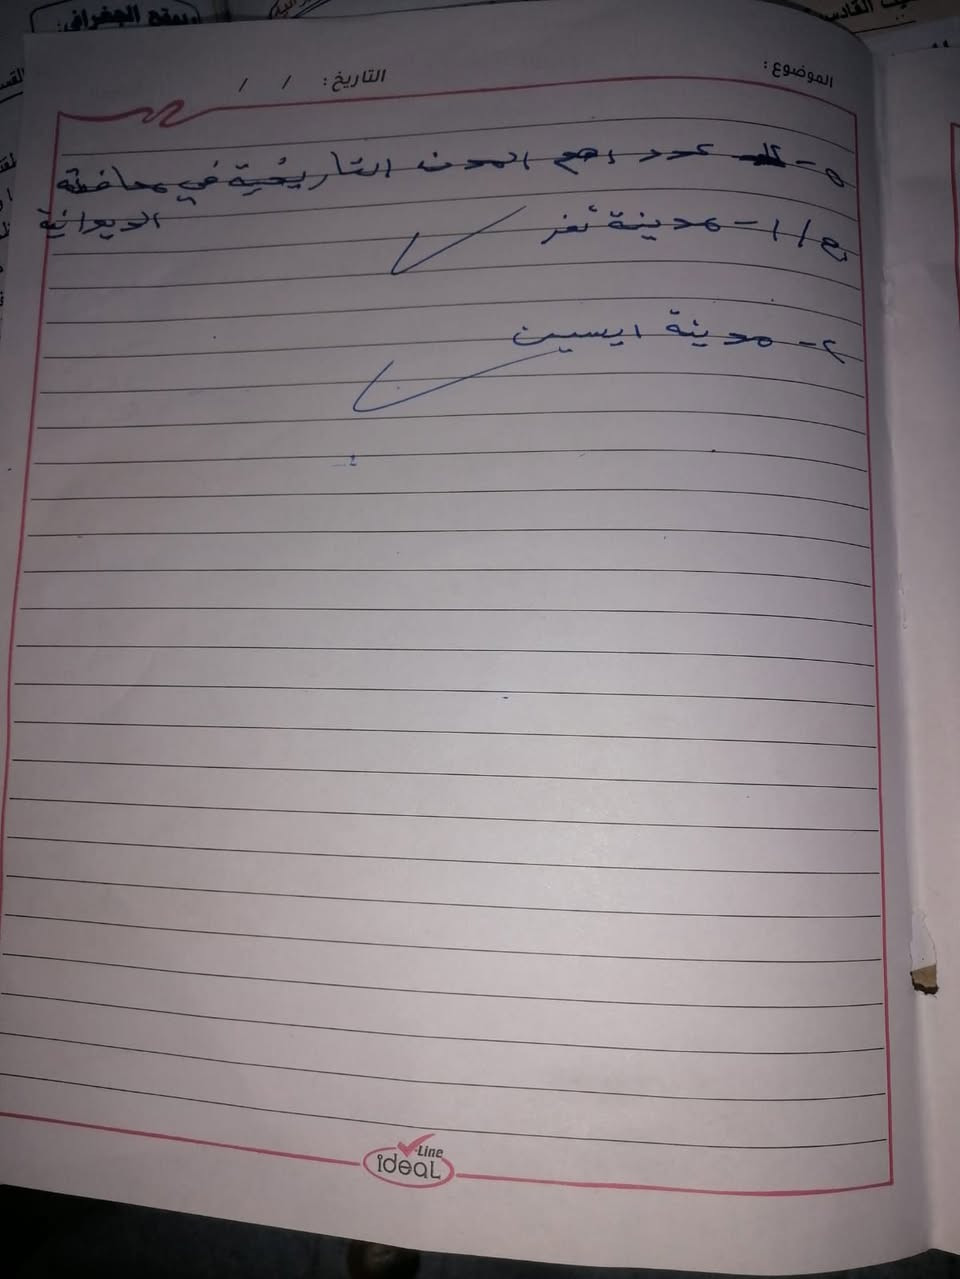 وموقع الجغرافي:
الموضوع:
التاريخ: / /
٥- عدد اهم المدن التاريخية في محافظة
الديوانية
ج/ ١- مدينة نفر
٢- مدينة ايسين
Line
ideal